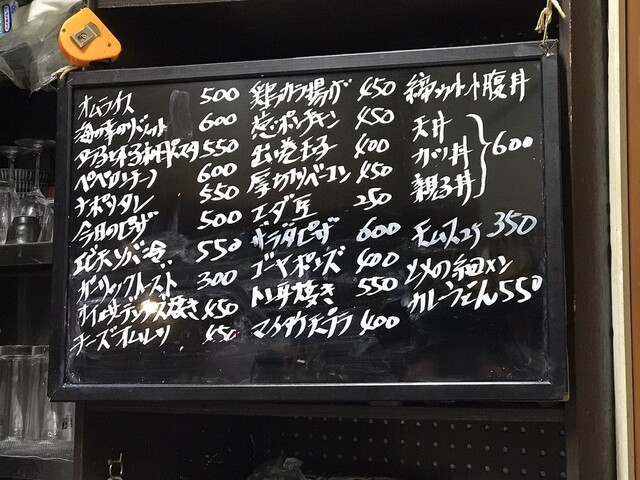 オムライス 500
海の幸のリゾット 600
タラコと木の子の和風パスタ 550
ペペロンチーノ 600
ナポリタン 550
今日のピザ 500
エビ天ソバ 冷 550
ガーリックトースト 300
オイルサーディンチーズ焼き 450
チーズオムレツ 450
鶏の唐揚げ 450
450
出し巻玉子 400
厚切りベーコン 450
エダ豆 250
サラダピザ 600
ゴーヤポンズ 400
トン平焼き 550
マイタケ天プラ 400
腹丼
天丼
カツ丼 600
親子丼
350
〆の細メン
カレーうどん 550